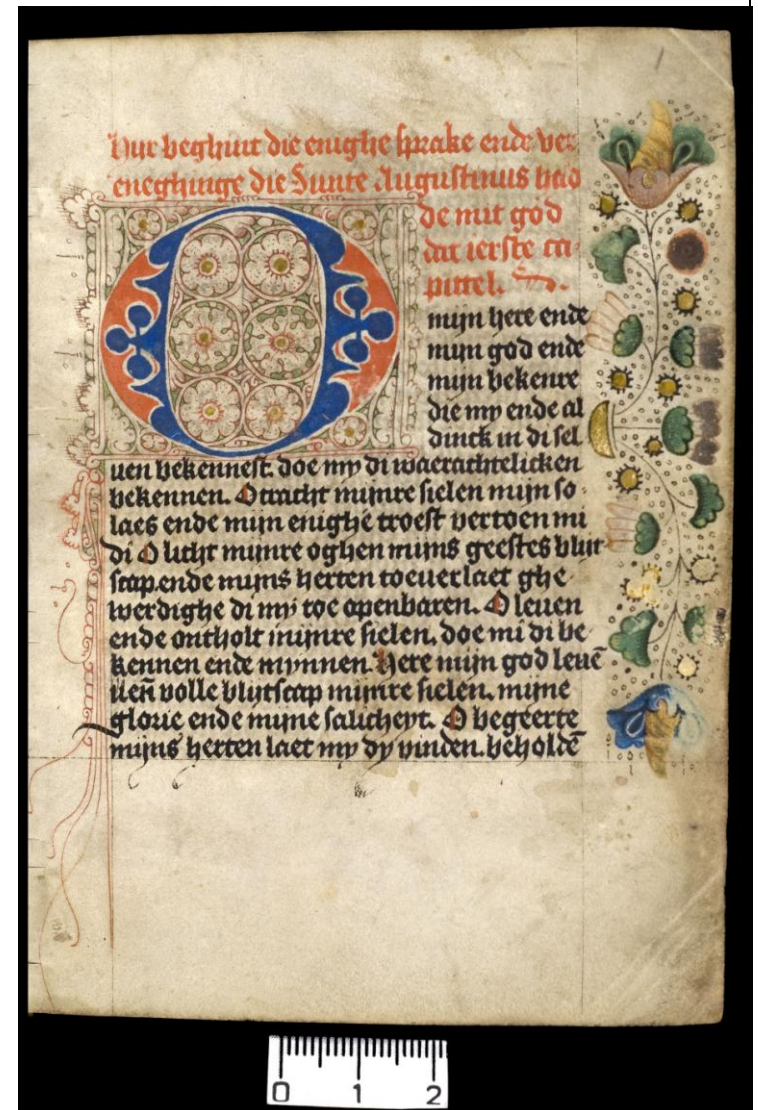 1
Hiir beghint die enighe sprake ende ver
eneghinge die Sunte Augustinus had
de mit god
dat ierste ca
pittel.
O mijn here ende
mijn god ende
mijn bekenre
die my ende al
dinck in di sel
uen bekennest. doe my di waerachtelicken
bekennen. O cracht mijnre sielen mijn so
laes ende mijn enighe troest vertoen mi
di O licht mijnre oghen mijns geestes blijt
scap. ende mijns herten toeuerlaet ghe
werdighe di my toe openbaren. O leuen
ende ontholt mijnre sielen. doe mi di be
kennen ende mynnen. Here mijn god leuē
den volle blijtscap mijnre sielen. mijne
glorie ende mijne salicheyt. O begeerte
mijns herten laet my dy vinden. beholdē
0 1 2